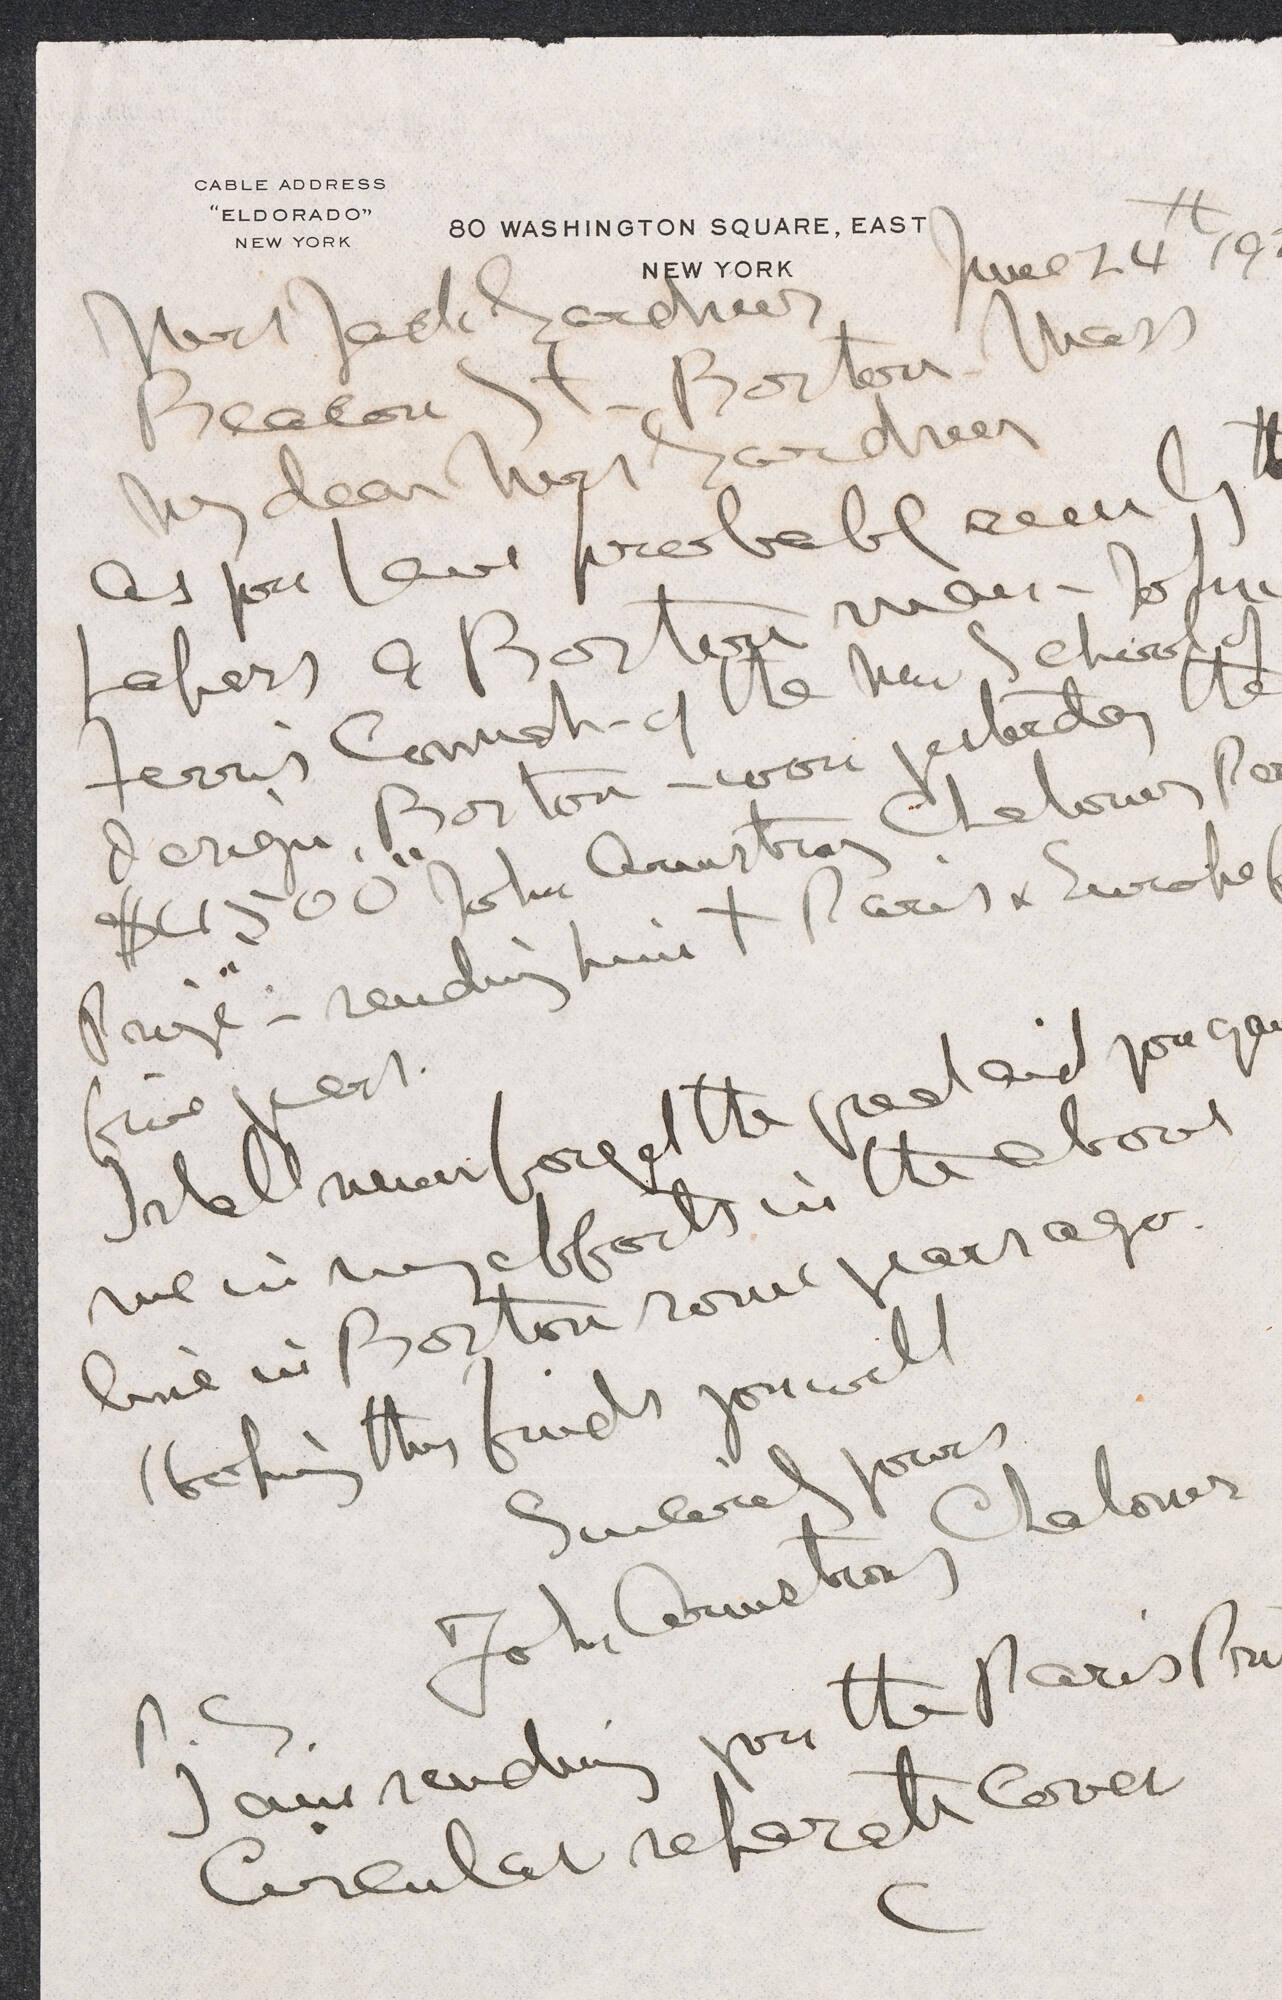 CABLE ADDRESS
"ELDORADO"
NEW YORK
80 WASHINGTON SQUARE, EAST
NEW YORK
June 24th 19
Mrs Jack Gardner
Beacon St - Boston - Mass
My dear Mrs Gardner
As you have probably seen by th
papers a Boston man - John
Ferris Connah - of the New School of
design, Boston - won yesterday the
$4500 "John Armstrong Chaloner
Prize" - sending him to Paris & Europe f
five years.
I shall never forget the great aid you
me in my efforts in the above
line in Boston some years ago.
Hoping this finds you well
Sincerely yours
John Armstrong Chaloner
P.S.
I am sending you the Paris
Circular separate cover
C